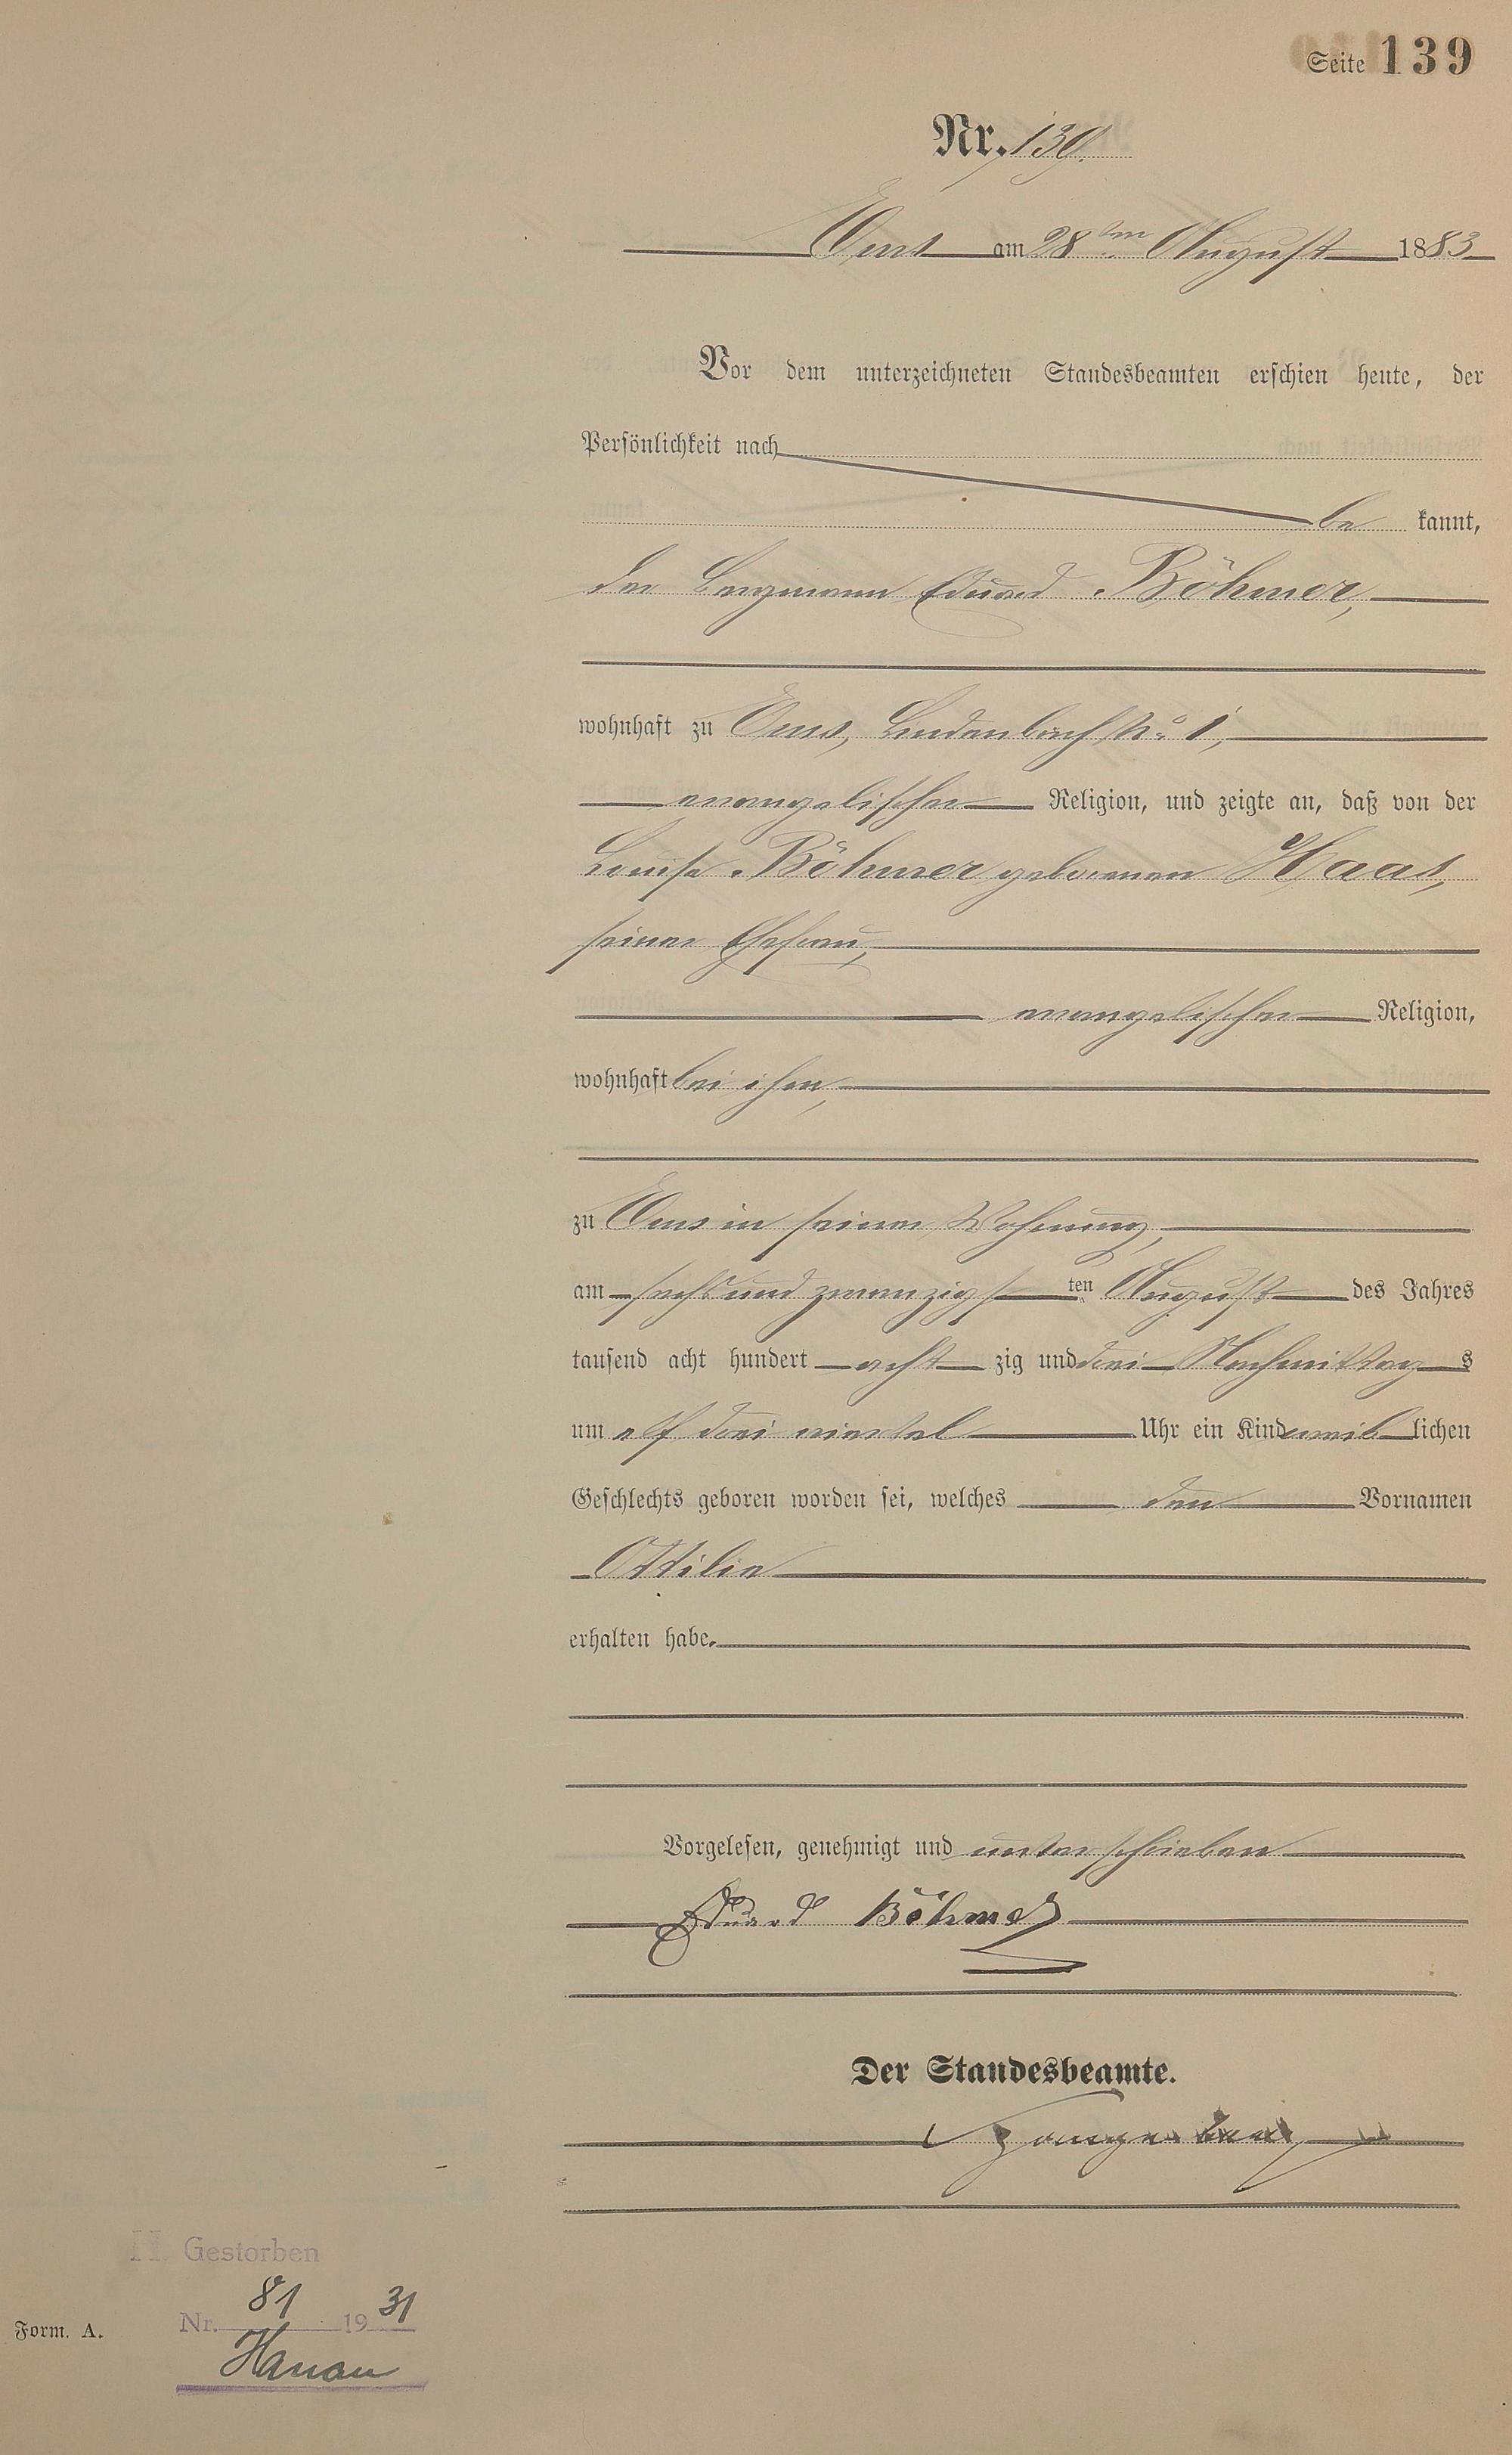 Seite 139
Nr. 139.
Ems am 28ten August 1883
Vor dem unterzeichneten Standesbeamten erschien heute, der
Persönlichkeit nach
be kannt,
der Bergmann Eduard Böhmer,
wohnhaft zu Ems, Lindenbach No. 1,
evangelischer Religion, und zeigte an, daß von der
Louise Böhmer geborenen Haas,
seiner Ehefrau,
evangelischer Religion,
wohnhaft bei ihm,
zu Ems in seiner Wohnung,
am sechs und zwanzigsten August des Jahres
tausend acht hundert acht zig und drei Nachmittags
um elf drei viertel Uhr ein Kind weiblichen
Geschlechts geboren worden sei, welches den Vornamen
Ottilie
erhalten habe.
Vorgelesen, genehmigt und unterschrieben
Eduard Böhmer
Der Standesbeamte.
H Gestorben
Nr. 81 1931
Hanau
Form. A.